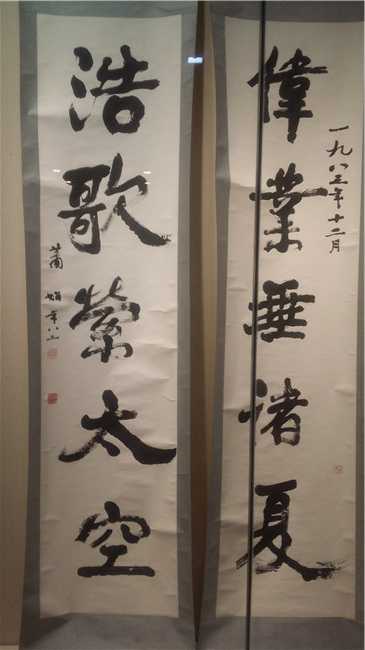 偉業垂諸夏
一九八三年十二月
浩歌縈太空
蕭娴年八三